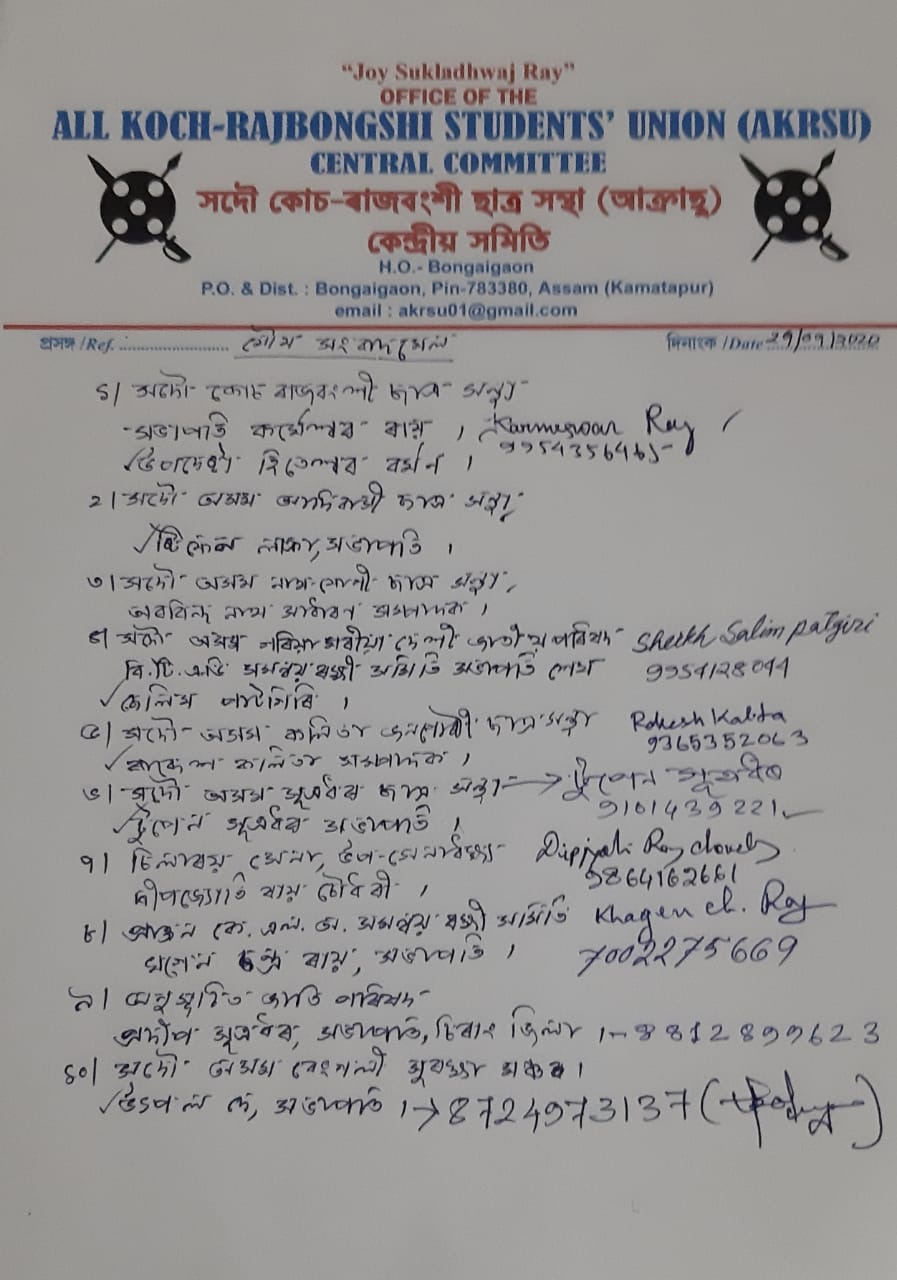 “Joy Sukladhwaj Ray”
OFFICE OF THE
ALL KOCH-RAJBONGSHI STUDENTS’ UNION (AKRSU)
CENTRAL COMMITTEE
সদৌ কোচ-ৰাজবংশী ছাত্ৰ সন্থা (আক্ৰাছু)
কেন্দ্ৰীয় সমিতি
H.O.- Bongaigaon
P.O. & Dist. : Bongaigaon, Pin-783380, Assam (Kamatapur)
email : akrsu01@gmail.com
প্ৰসঙ্গ /Ref. যৌথ সংবাদমেল দিনাংক /Date 29/09/2020
১। সদৌ কোচ ৰাজবংশী ছাত্ৰ সন্থা
সভাপতি কৰ্মেশ্বৰ ৰায় । Karmeswar Ray
উপদেষ্টা হিতেশ্বৰ বৰ্মন ।
২। সদৌ অসম আদিবাসী ছাত্ৰ সন্থা,
লাক্ৰা, সভাপতি ।
৩। সদৌ অসম নাথ-যোগী ছাত্ৰ সন্থা,
অৰবিন্দ নাথ সাধাৰণ সম্পাদক ।
৪। সদৌ অসম গৰিয়া মৰীয়া দেশী জাতীয় পৰিষদ Sheikh Salim Patgiri
বি.টি.এডি সমন্বয় ৰক্ষী সমিতি সভাপতি শেখ 9954128044
ছেলিম পাটগিৰি ।
৫। সদৌ অসম কলিতা জনগোষ্ঠী ছাত্ৰ সন্থা Rakesh Kalita
ৰাকেশ কলিতা সম্পাদক । 9365352063
৬। সদৌ অসম সূত্ৰধৰ ছাত্ৰ সন্থা → টুপেন সূত্ৰধৰ
টুপেন সূত্ৰধৰ সভাপতি । 9101439221
৭। চিলাৰায় সেনা, উপ-সেনাধ্যক্ষ Dipjyoti Ray Choudhury
দীপজ্যোতি ৰায় চৌধুৰী । 9864162661
৮। প্ৰাক্তন কে. এল. অ. সমন্বয় ৰক্ষী সমিতি Khagen ch. Ray
খগেন চন্দ্ৰ ৰায়, সভাপতি । 7002275669
৯। অনুসূচিত জাতি পৰিষদ
প্ৰদীপ সূত্ৰধৰ, সভাপতি, চিৰাং জিলা ।
১০। সদৌ অসম বেংগলী যুৱছাত্ৰ
উৎপল দে, সভাপতি । → 8724973137